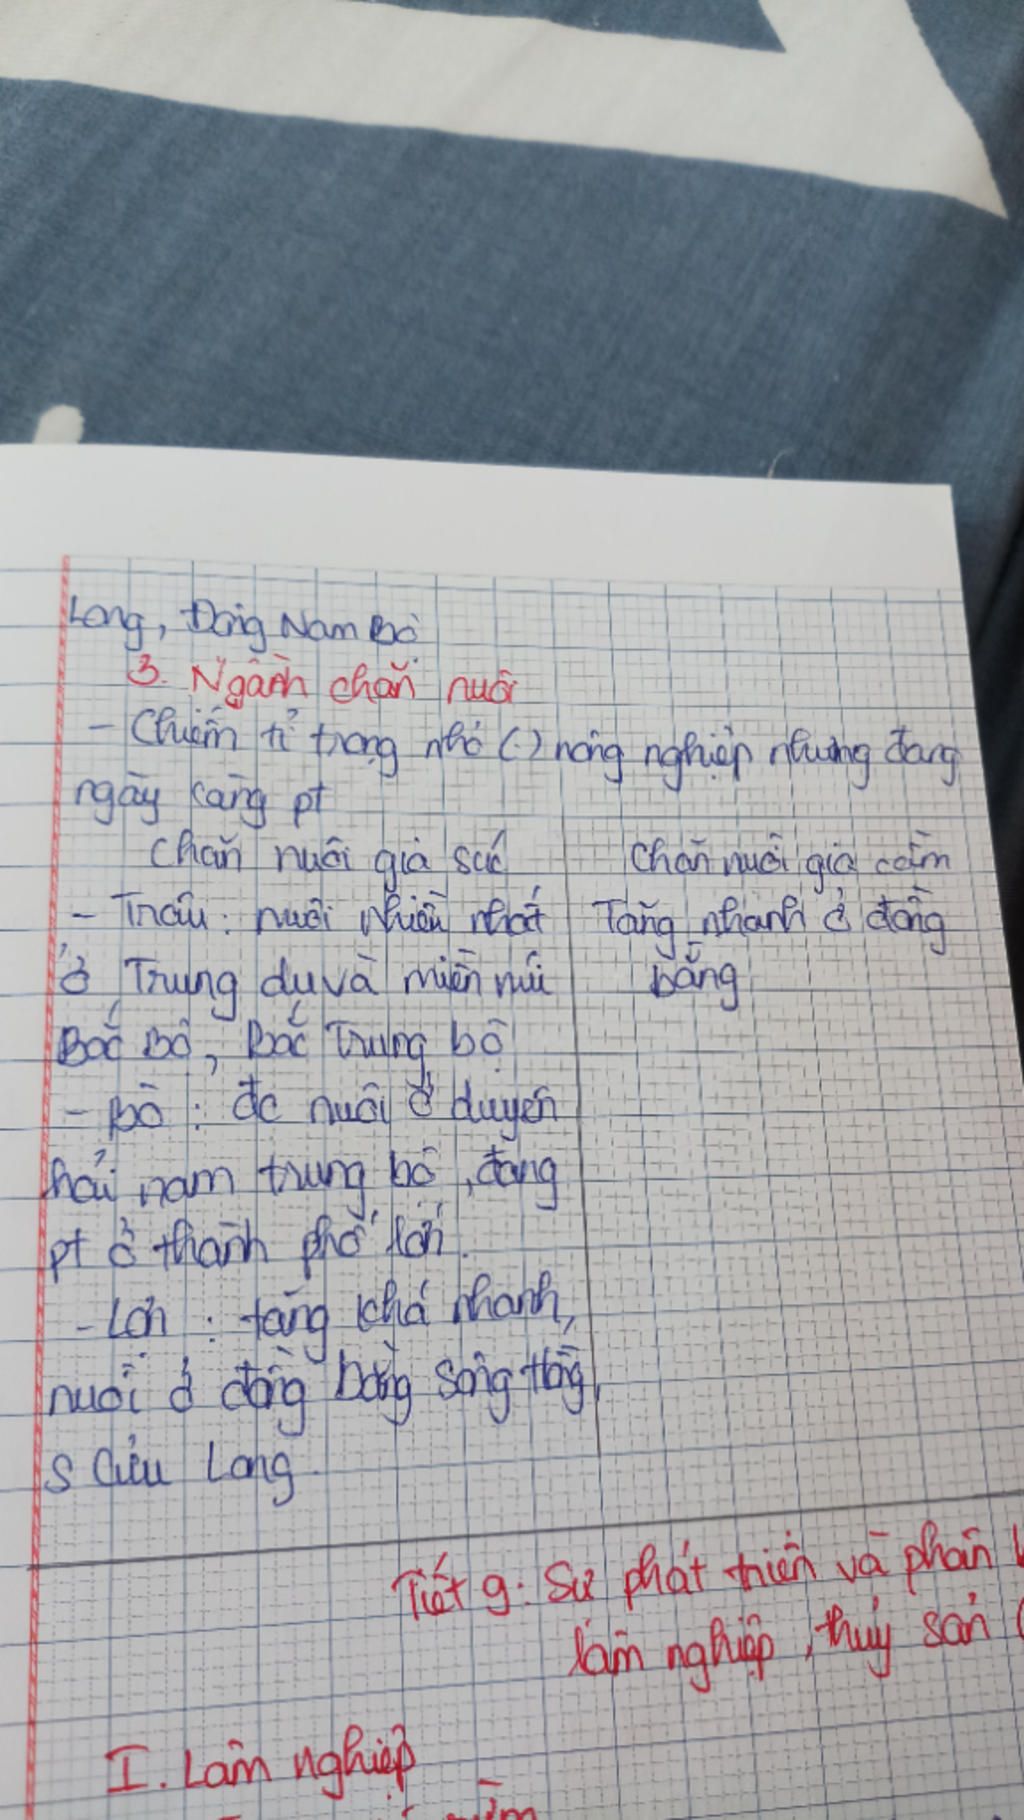 Long, Đông Nam Bộ
3. Ngành chăn nuôi
- Chiếm tỉ trọng nhỏ (.) nông nghiệp nhưng đang
ngày càng pt
Chăn nuôi gia súc
- Trâu: nuôi nhiều nhất
ở Trung du và miền núi
Bắc Bộ, Bắc Trung bộ
- Bò: đc nuôi ở duyên
hải nam trung bộ, đang
pt ở thành phố lớn.
- Lợn: tăng khá nhanh,
nuôi ở đồng bằng sông Hồng,
s Cửu Long
Chăn nuôi gia cầm
Tăng nhanh ở đồng
bằng
Tiết 9: Sự phát triển và phân
lâm nghiệp, thuỷ sản (
I. Lâm nghiệp